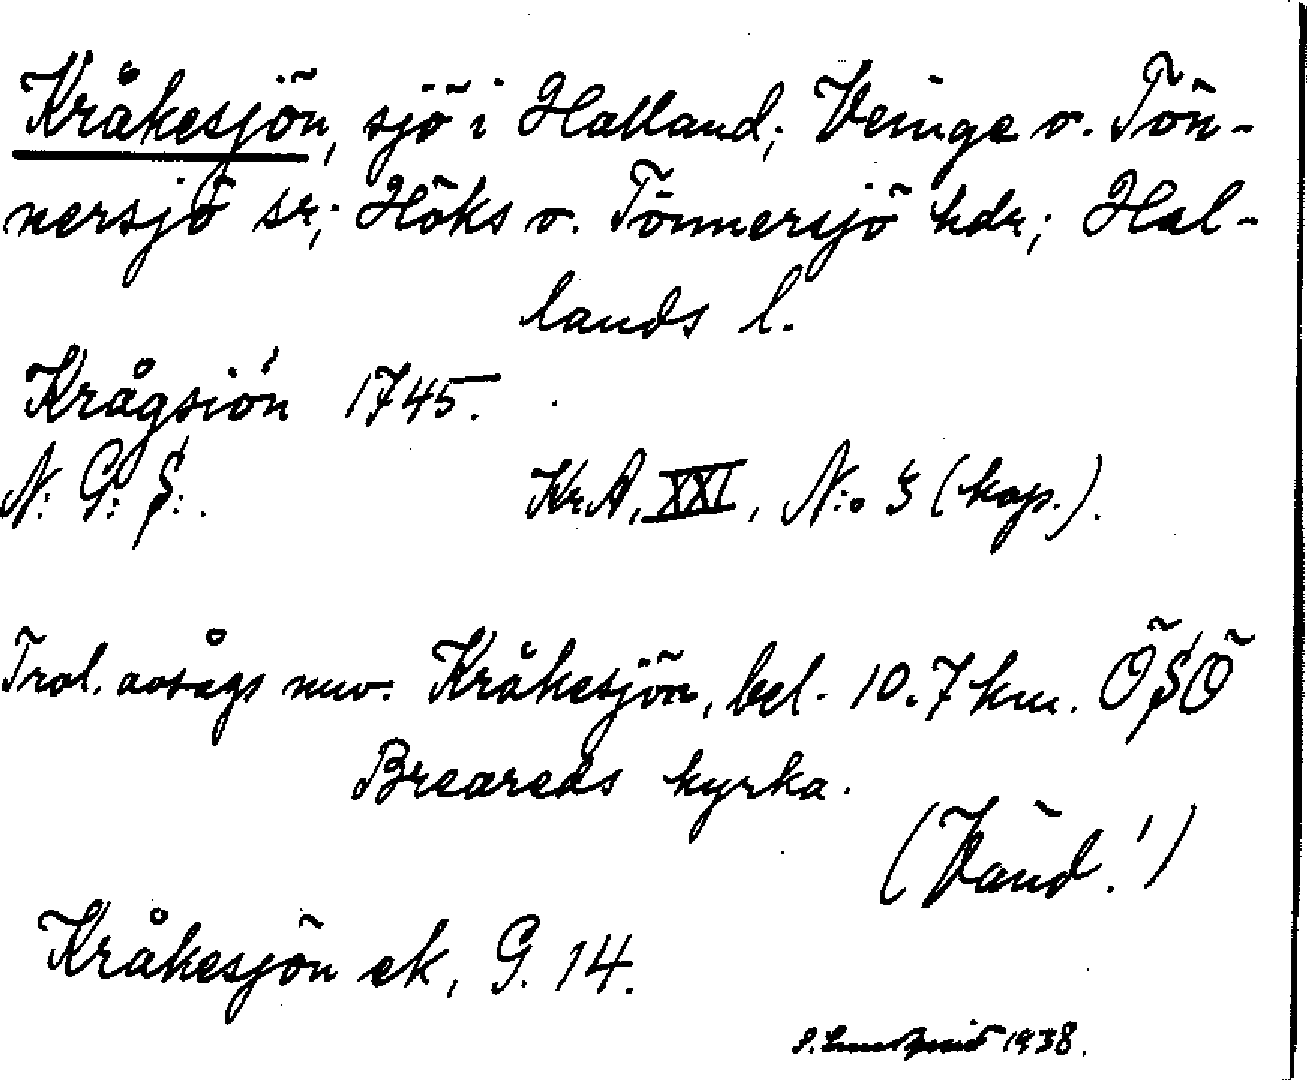 Kråkesjön, sjö i Halland; Veinge o. Tön-
nersjö sr; Höks o. Tönnersjö hdr; Hal-
lands l.
Krågsión 1745.
N: G: S: . KrA, XXI, N:o 3 (kop.).
Trol. avsågs nuv. Kråkesjön, bel. 10.7 km. ÖSÖ
Breareds kyrka.
(Vänd!)
Kråkesjön ek, G. 14.
1938.